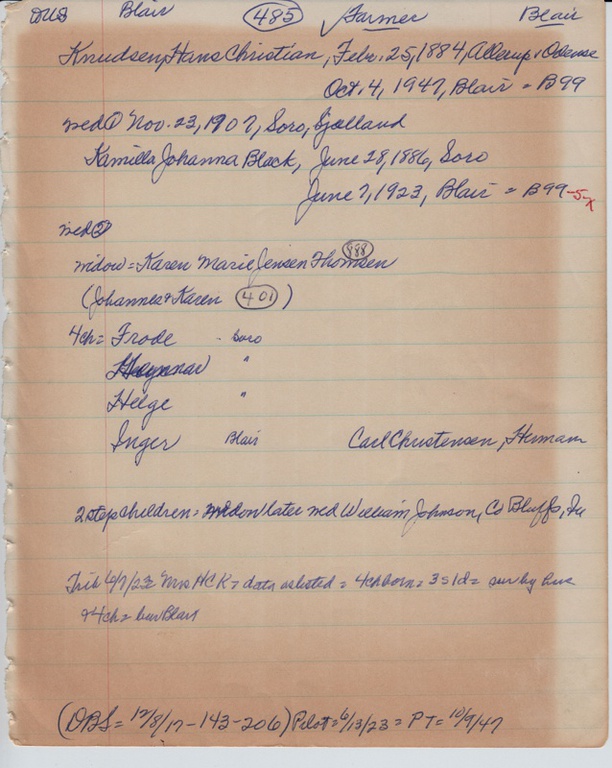 DUS Blair 485 Farmer Blair
Knudsen, Hans Christian, Febr. 25, 1884, Allerup, Odense
Oct. 4, 1947, Blair = B99
med ① Nov. 23, 1907, Soro, Sjælland
Kamilla Johanna Black, June 28, 1886, Soro
June 7, 1923, Blair = B99-5-x
med ②
888
widow = Karen Marie Jensen Thomsen
(Johannes & Karen 401)
4ch = Frode - Soro
"
Helge "
Inger Blair Carl Christensen, Herman
2 step children = widow later med William Johnson, Co Bluffs, Ia
Trib 6/7/23 Mrs HCK = data as listed = 4ch born = 3s 1d = sur by hus
& 4ch = bur Blair
(DBS = 12/8/17-143-206) Pilot = 6/13/23 = PT = 10/9/47